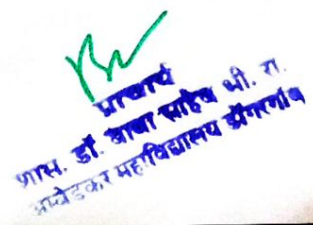 प्राचार्य
शास. डॉ. बाबा साहेब भी. रा.
अम्बेडकर महाविद्यालय डोंगरगांव